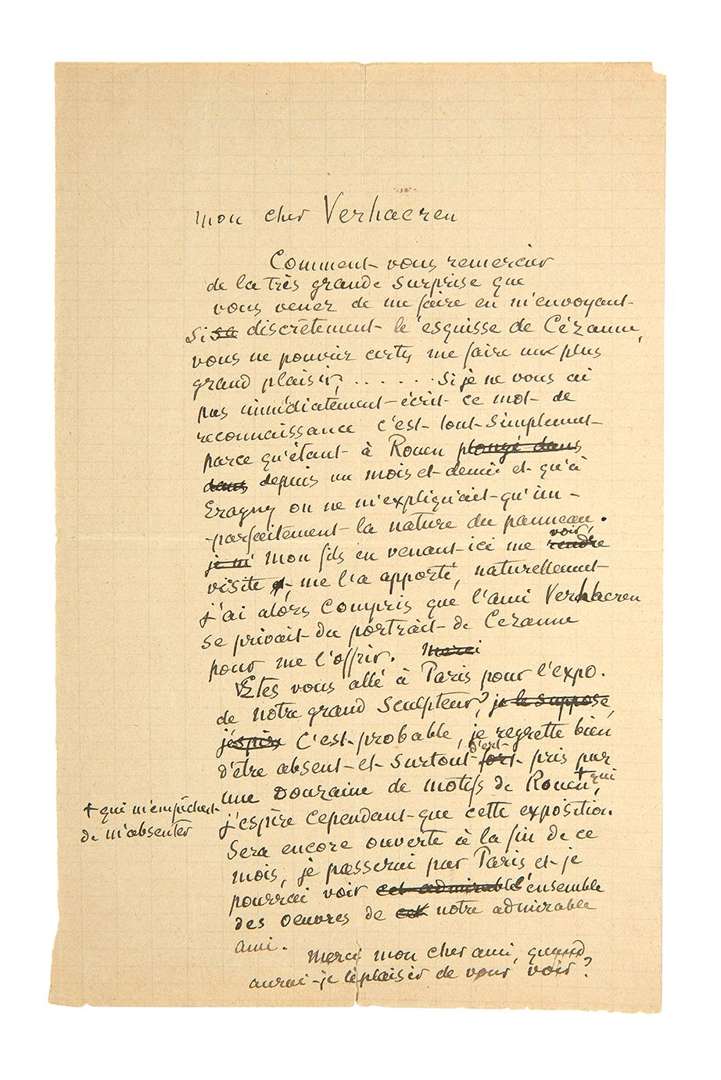 mon cher Verhaeren
Comment vous remercier
de la très grande surprise que
vous venez de me faire en m'envoyant
si sa discrètement l'esquisse de Cézanne,
vous ne pouvir certes me faire un plus
grand plaisir, . . . . . . Si je ne vous ai
pas immédiatement écrit ce mot de
reconnaissance c'est tout simplement
parce qu'étant à Rouen plongé dans
dans depuis un mois et demi et qu'à
Eragny on ne m'expliquait qu'im-
-parfaitement la nature du panneau.
je m' mon fils en venant ici me voir, rendre
visite et, me l'a apporté, naturellement
j'ai alors compris que l'ami Verhaeren
se privait du portrait de Cezanne
pour me l'offrir. Merci
Etes vous allé à Paris pour l'expo.
de notre grand sculpteur? je le suppose,
j'éspère C'est probable, je regrette bien
d'être absent et surtout d'être fort pris par
une Douzaine de motifs de Rouen + qui
+ qui m'empêchent
de m'absenter
j'espère cependant que cette exposition
sera encore ouverte à la fin de ce
mois, je passerai par Paris et je
pourrai voir cet admirable l'ensemble
des oeuvres de cet notre admirable
ami.
Merci mon cher ami, quand
aurai-je le plaisir de vous voir?